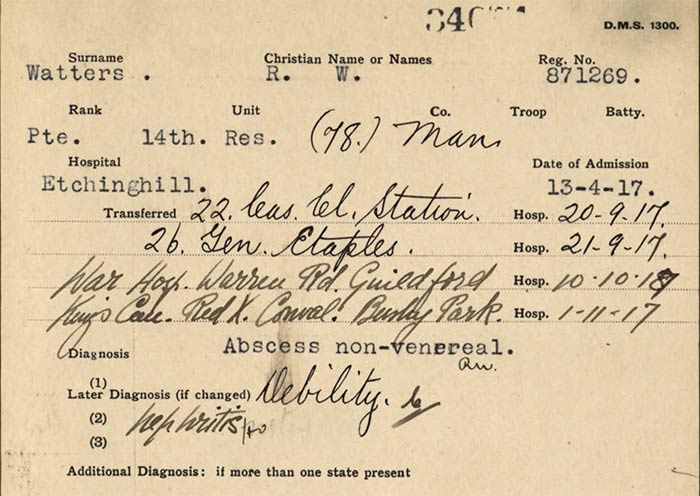 D.M.S. 1300.
Surname Christian Name or Names Reg. No.
Watters . R. W. 871269.
Rank Unit Co. Troop Batty.
Pte. 14th. Res. (78.) Man.
Hospital Date of Admission
Etchinghill. 13-4-17.
Transferred 22. Cas. Cl. Station. Hosp. 20-9-17.
26. Gen. Etaples. Hosp. 21-9-17.
War Hosp. Warren Rd. Guildford Hosp. 10-10-17
King's Can. Red X. Conval. Bushy Park. Hosp. 1-11-17
Diagnosis Abscess non-venereal.
(1)
Later Diagnosis (if changed) Debility.
(2) Nephritis
(3)
Additional Diagnosis: if more than one state present